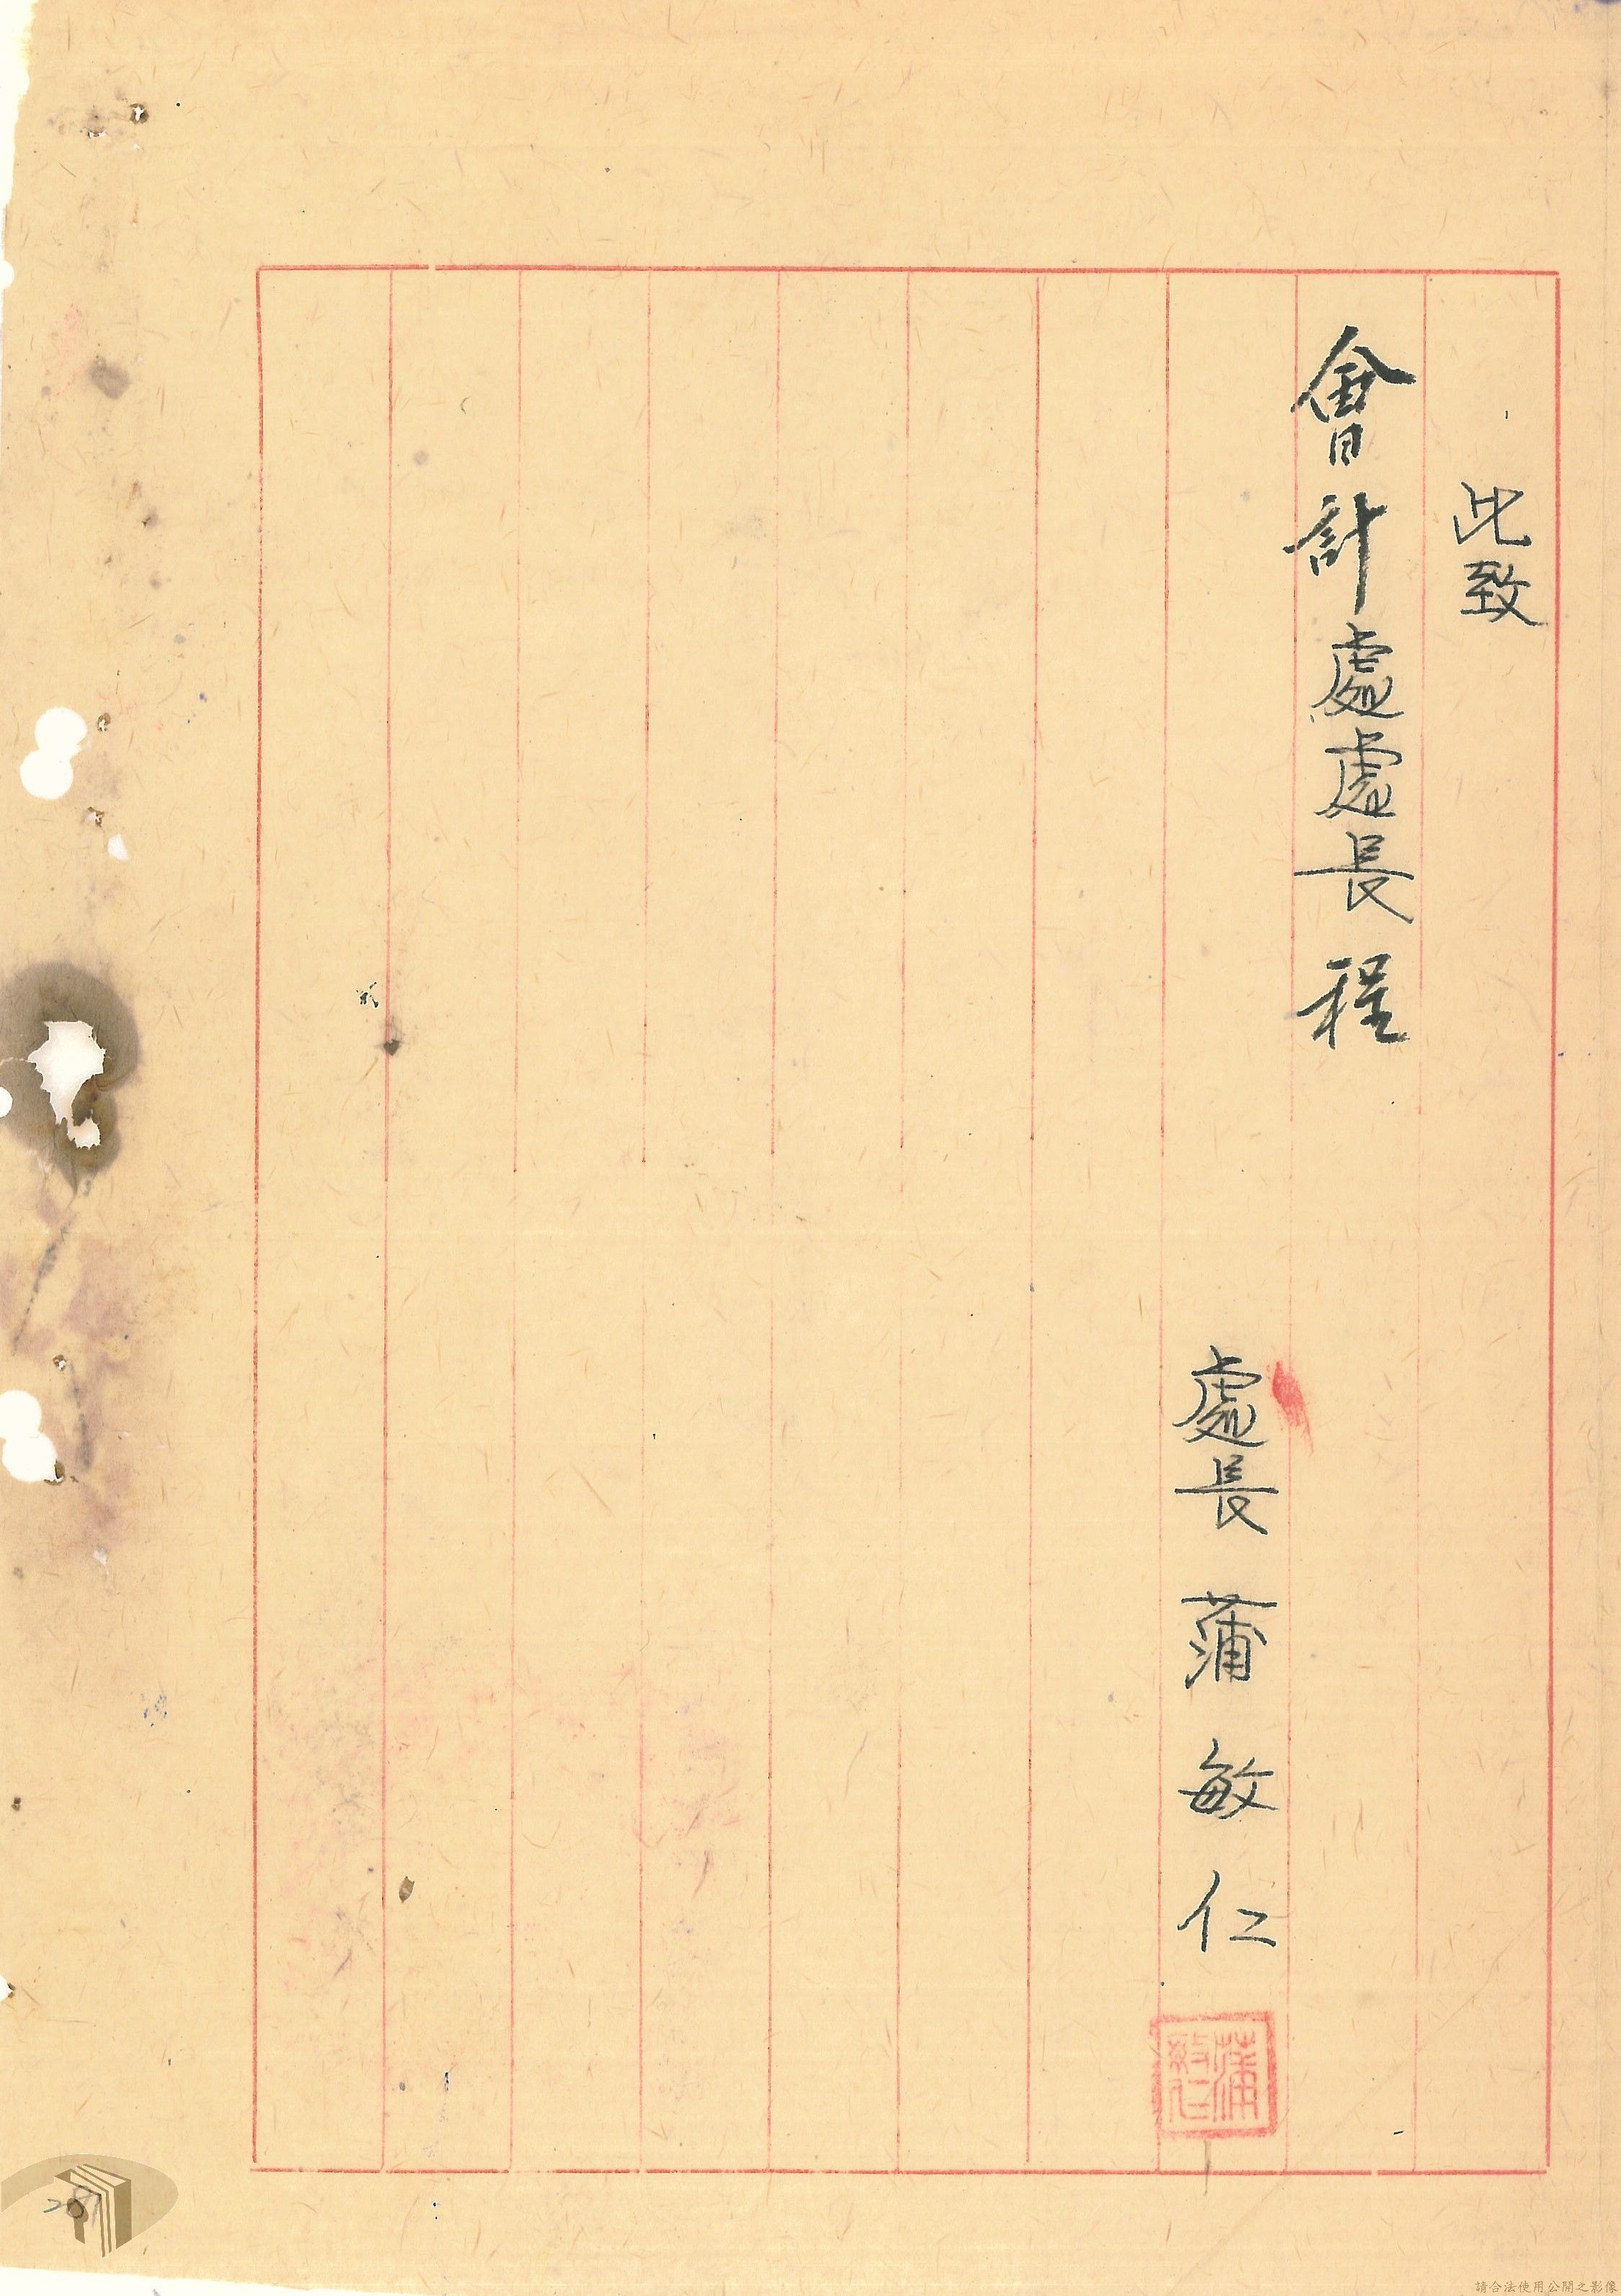 此致
會計處處長程
處長 蒲敏仁
蒲敏仁
請合法使用公開之影像